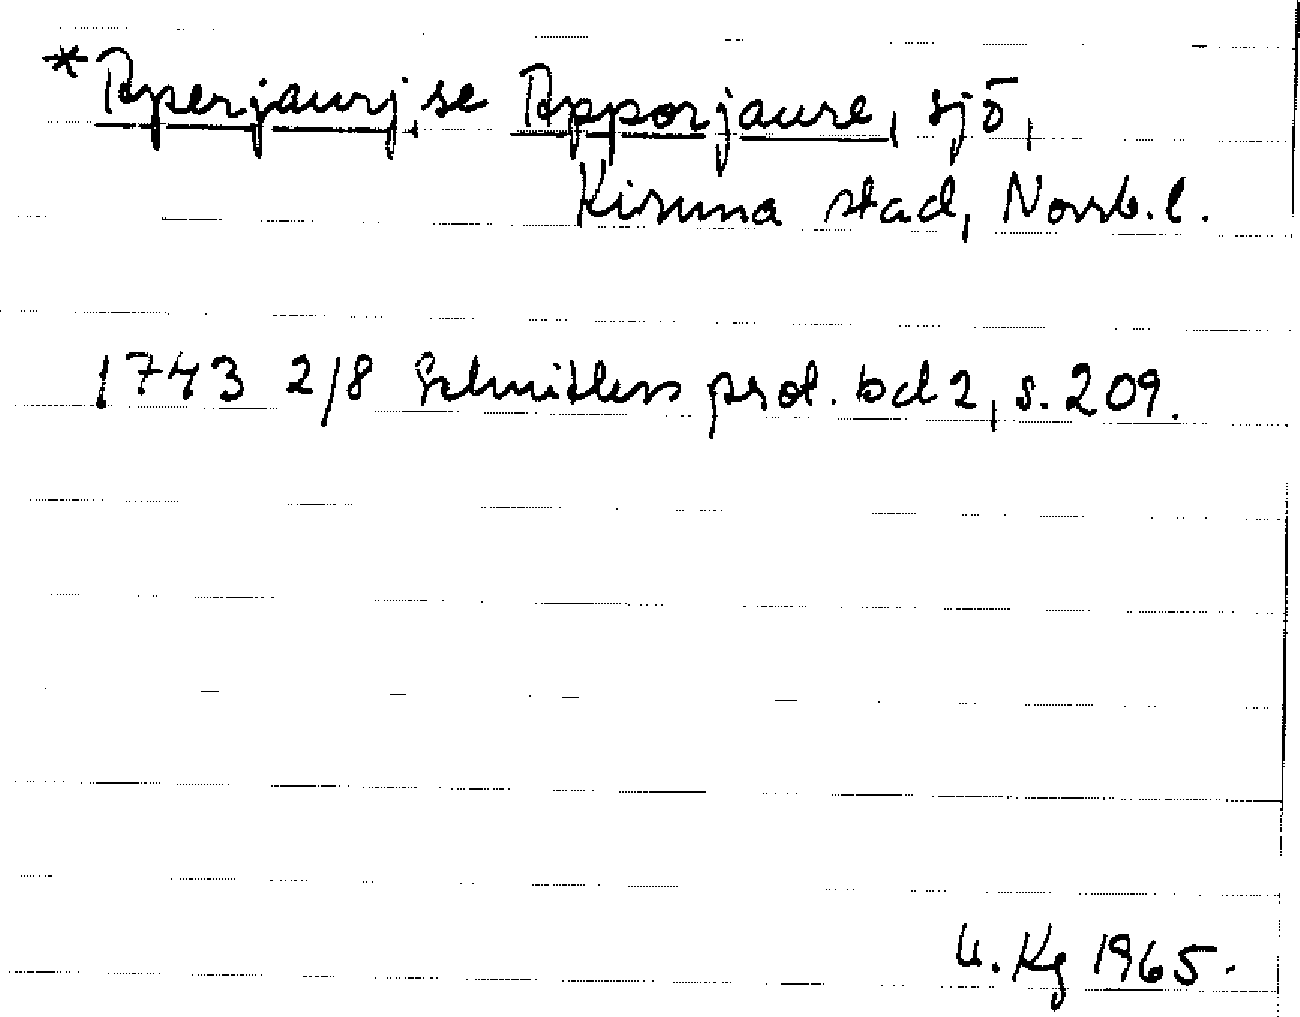 *Aperjaurj, se Apporjaure, sjö,
Kiruna stad, Norrb. l.
1743 2/8 Schnitlers prot. bd 2, s. 209.
U. Kg 1965.